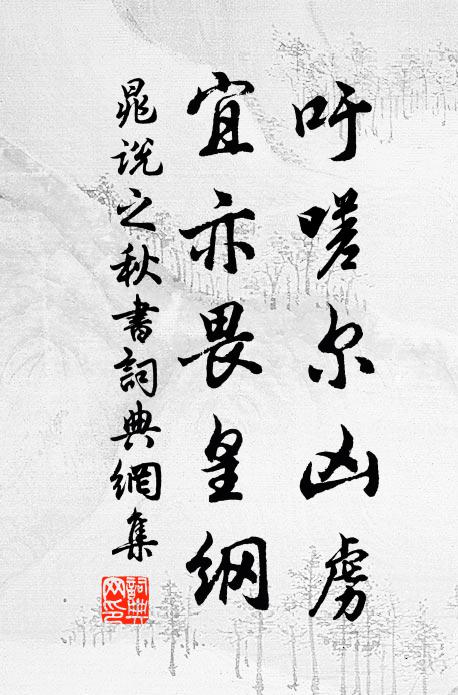 吁嗟尔凶虏
宜亦畏皇纲
晁说之秋書詞典網集
詞典网印